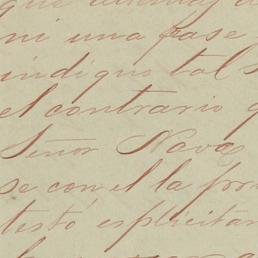 ni una frase
indique tal
el contrario
Señor Navas
se con el la
testó esplicitam